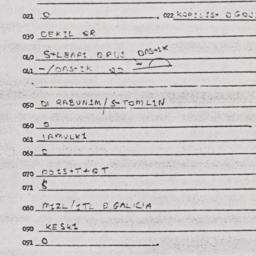 021 0 022 KOPILIS+ D GOJ
030 DEKIL GR
040 S+LEAPI DPUJ DAS+IK
041 -/DAS+IK
050 DI RABUNIM/S+TOMLIN
060 0
061 IAMULKI
062 0
070 ODIS+T+GT
071 S
080 MIZL/ITL D GALICIA
090 KESKI
091 0